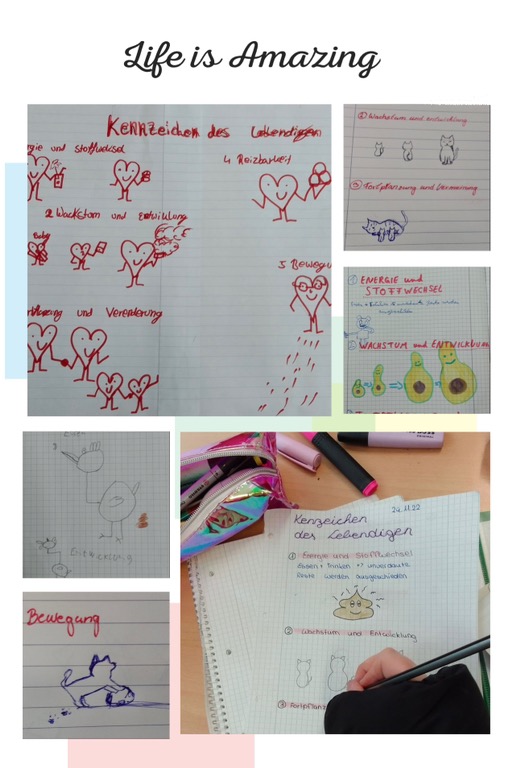 Life is Amazing
Kennzeichen des Lebendigen
rgie und stoffwechsel
4 Reizbarkeit
2 Wachstum und Entwiklung
Baby
5 Bewegu
und Vererderung
② Wachstum und entwicklung
③ Fortpflanzung und Vermerung
① ENERGIE und
STOFFWECHSEL
② WACHSTUM und ENTWICKLUNG
Bewegung
24.11.22
Kenzeichen
des Lebendigen
① Energie und Stoffwechsel
Essen + trinken => unverdaute
Reste werden ausgeschieden
② Wachstum und Entwicklung
③ Fortpflanz